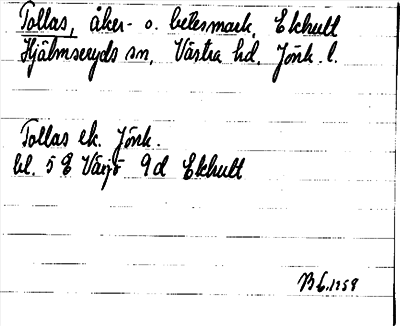 Tollas, åker- o. betesmark, Ekhult
Hjälmseryds sn, Västra hd, Jönk. l.
Tollas ek. Jönk.
bl. 5 E Växjö 9d Ekhult